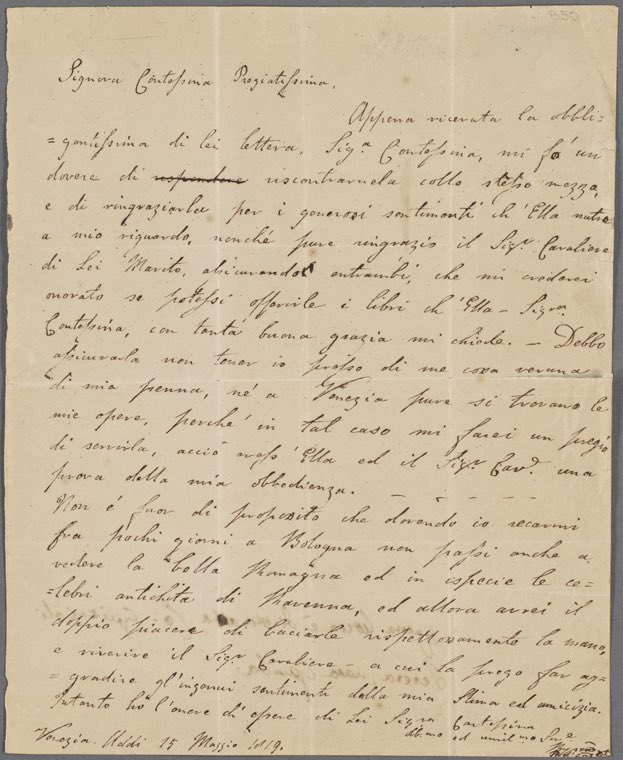 B50
Signora Contessina Pregiatissima.
Appena ricevuta la obbli=
=gantissima di lei lettera, Sig.a Contessina, mi fò un
dovere di respondere riscontrarnela collo stesso mezzo,
e di ringraziarla per i generosi sentimenti ch'Ella nutre
a mio riguardo, nonchè pure ringrazio il Sig.r Cavaliere
di Lei Marito, assicurando entrambi, che mi crederei
onorato se potessi offerirle i libri ch'Ella – Sig.ra
Contessina, con tanta buona grazia mi chiede. – Debbo
assicurarla non tener io presso di me cosa veruna
di mia penna, nè a Venezia pure si trovano le
mie opere, perchè in tal caso mi farei un pregio
di servirla, acciò avess'Ella ed il Sig.r Cav.e una
prova della mia obbedienza. – – – –
Non é fuor di proposito che dovendo io recarmi
fra pochi giorni a Bologna non passi anche a
vedere la bella Romagna ed in ispecie le ce=
=lebri antichità di Ravenna, ed allora avrei il
doppio piacere di baciarle rispettosamente la mano,
e riverire il Sig.r Cavaliere – a cui la prego far ag=
=gradire gl'ingenui sentimenti della mia Stima ed amicizia.
Intanto hò l'onore di essere di Lei Sig.ra Contessina
Venezia. Addi 15 Maggio 1819. ed umil.mo Ser.e